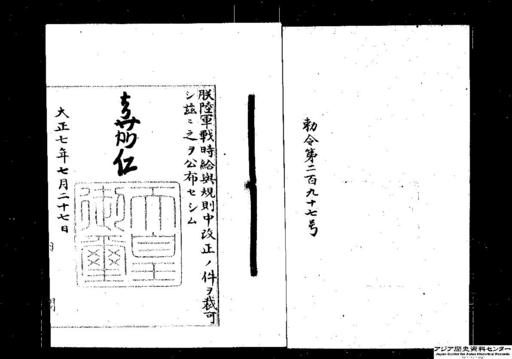 勅令第二百九十七号
朕陸軍戦時給與規則中改正ノ件ヲ裁可
シ茲ニ之ヲ公布セシム
嘉仁
天皇御璽
大正七年七月二十七日
アジア歴史資料センター
Japan Center for Asian Historical Records